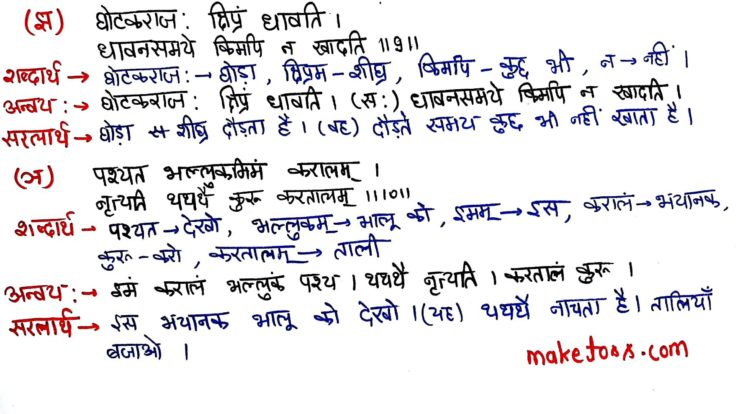 (झ) घोटकराजः क्षिप्रं धावति ।
धावनसमये किमपि न खादति ॥9॥
शब्दार्थ → घोटकराजः → घोड़ा, क्षिप्रम - शीघ्र, किमपि - कुछ भी, न → नहीं ।
अन्वयः → घोटकराजः क्षिप्रं धावति । (सः) धावनसमये किमपि न खादति ।
सरलार्थ → घोड़ा शीघ्र दौड़ता है । (वह) दौड़ते समय कुछ भी नहीं खाता है ।
(ञ) पश्यत भल्लुकमिमं करालम् ।
नृत्यति थथथै कुरु करतालम् ॥10॥
शब्दार्थ → पश्यत → देखो, भल्लुकम् → भालू को, इमम् → इस, करालं → भयानक,
कुरु - करो, करतालम् → ताली
अन्वयः → इमं करालं भल्लुकं पश्य । थथथै नृत्यति । करतालं कुरु ।
सरलार्थ → इस भयानक भालू को देखो । (यह) थथथै नाचता है । तालियाँ
बजाओ ।
maketoss.com